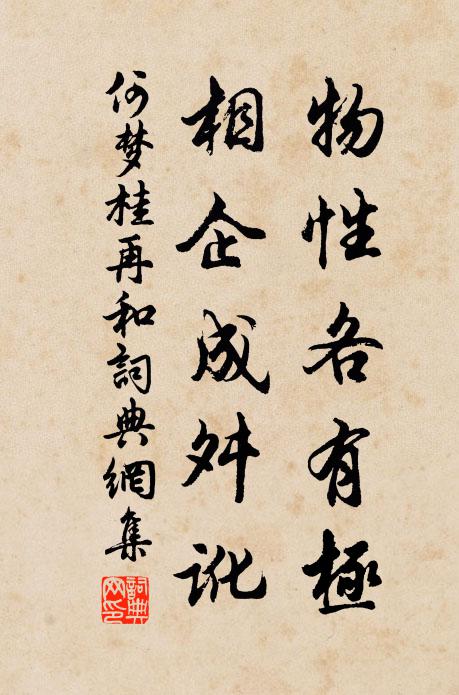 物性各有極
相企成舛訛
何梦桂再和詞典網集
詞典网印